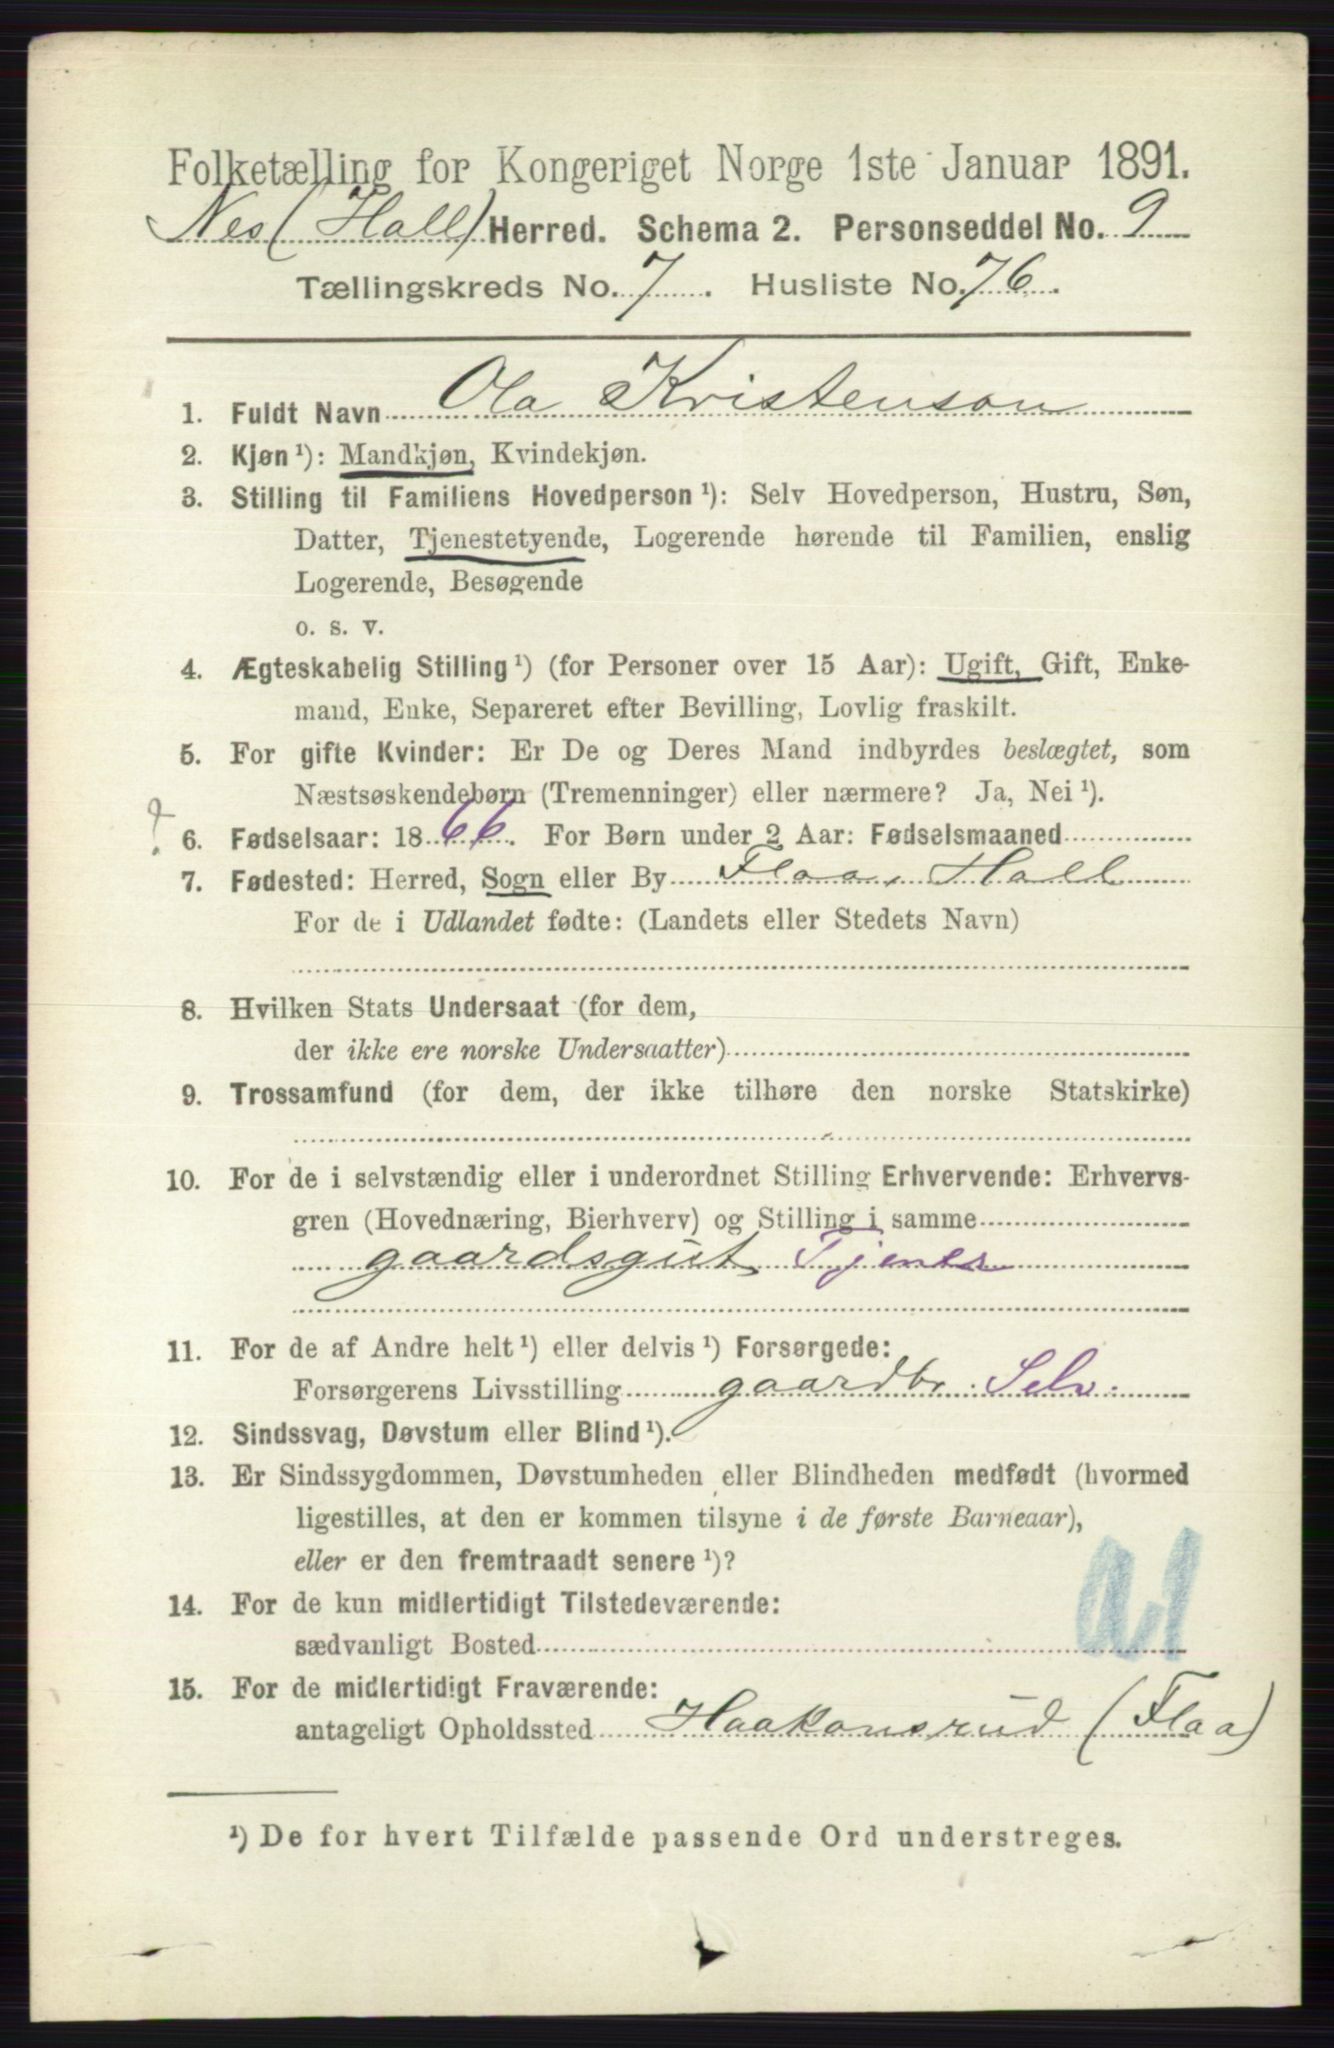 Folketælling for Kongeriget Norge 1ste Januar 1891.
Nes (Hall) Herred. Schema 2. Personseddel No. 9
Tællingskreds No. 7. Husliste No. 76.
1. Fuldt Navn Ola Kristenson
2. Kjøn ¹): Mandkjøn, Kvindekjøn.
3. Stilling til Familiens Hovedperson ¹): Selv Hovedperson, Hustru, Søn,
Datter, Tjenestetyende, Logerende hørende til Familien, enslig
Logerende, Besøgende
o. s. v.
4. Ægteskabelig Stilling ¹) (for Personer over 15 Aar): Ugift, Gift, Enke-
mand, Enke, Separeret efter Bevilling, Lovlig fraskilt.
5. For gifte Kvinder: Er De og Deres Mand indbyrdes beslægtet, som
Næstsøskendebørn (Tremenninger) eller nærmere? Ja, Nei ¹).
? 6. Fødselsaar: 1866. For Børn under 2 Aar: Fødselsmaaned
7. Fødested: Herred, Sogn eller By Flaa, Hall
For de i Udlandet fødte: (Landets eller Stedets Navn)
8. Hvilken Stats Undersaat (for dem,
der ikke ere norske Undersaatter)
9. Trossamfund (for dem, der ikke tilhøre den norske Statskirke)
10. For de i selvstændig eller i underordnet Stilling Erhvervende: Erhvervs-
gren (Hovednæring, Bierhverv) og Stilling i samme
gaardsgut Tjener
11. For de af Andre helt ¹) eller delvis ¹) Forsørgede:
Forsørgerens Livsstilling gaardbr. Selv.
12. Sindssvag, Døvstum eller Blind ¹).
13. Er Sindssygdommen, Døvstumheden eller Blindheden medfødt (hvormed
ligestilles, at den er kommen tilsyne i de første Barneaar),
eller er den fremtraadt senere ¹)?
14. For de kun midlertidigt Tilstedeværende:
sædvanligt Bosted
15. For de midlertidigt Fraværende:
antageligt Opholdssted Haakonsrud (Flaa)
¹) De for hvert Tilfælde passende Ord understreges.